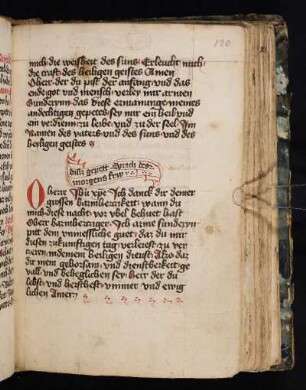 170
mich die weisheit des suns Erleucht mich
die craft des heiligen geistes Amen
O herr der du pist der anfang vnd das
end got vnd mensch verley mir armen
Sunderynn das diese ermanunge meines
andechtigen gepetes sey mir ein heil vnd
ein verdienen zu leibe vnd zu der sel Im
Namen des vaters vnd des suns vnd des
heyligen geistes
disz gepett sprich des
morgens frw
O herre Ihu xpe Ich danck dir deiner
grossen barmhertzikeit wann du
mich diese nacht vor vbel behuet hast
O herr barmhertziger Ich arme sunderyn
pitt dein vnmessliche guet das du mir
diesen zukunftigen tag verleest zu ver
zeren in deinem heiligen dienst Also das
dir mein gehorsam vnd dienstberkeit ge
vall vnd beheglichen sey herr der du
lebst vnd herschest ymmer vnd ewig
lichen Amen